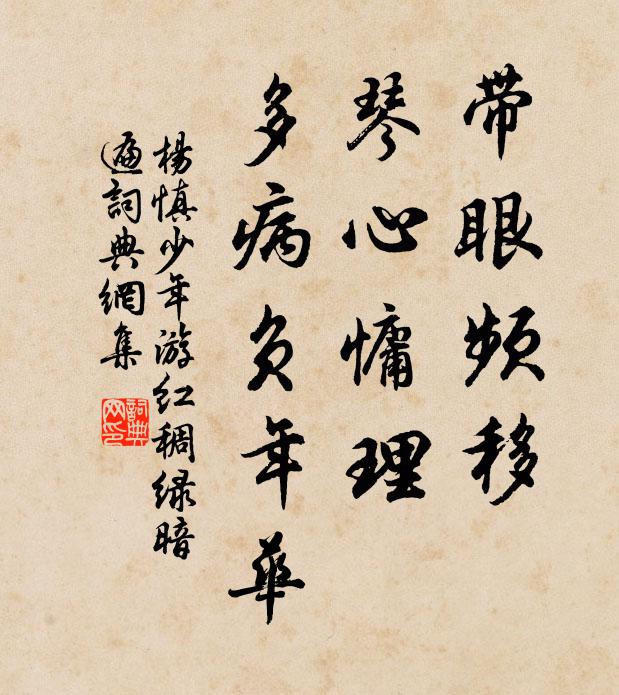 带眼频移
琴心慵理
多病负年华
杨慎少年游红稠绿暗
遍詞典網集
詞典网印